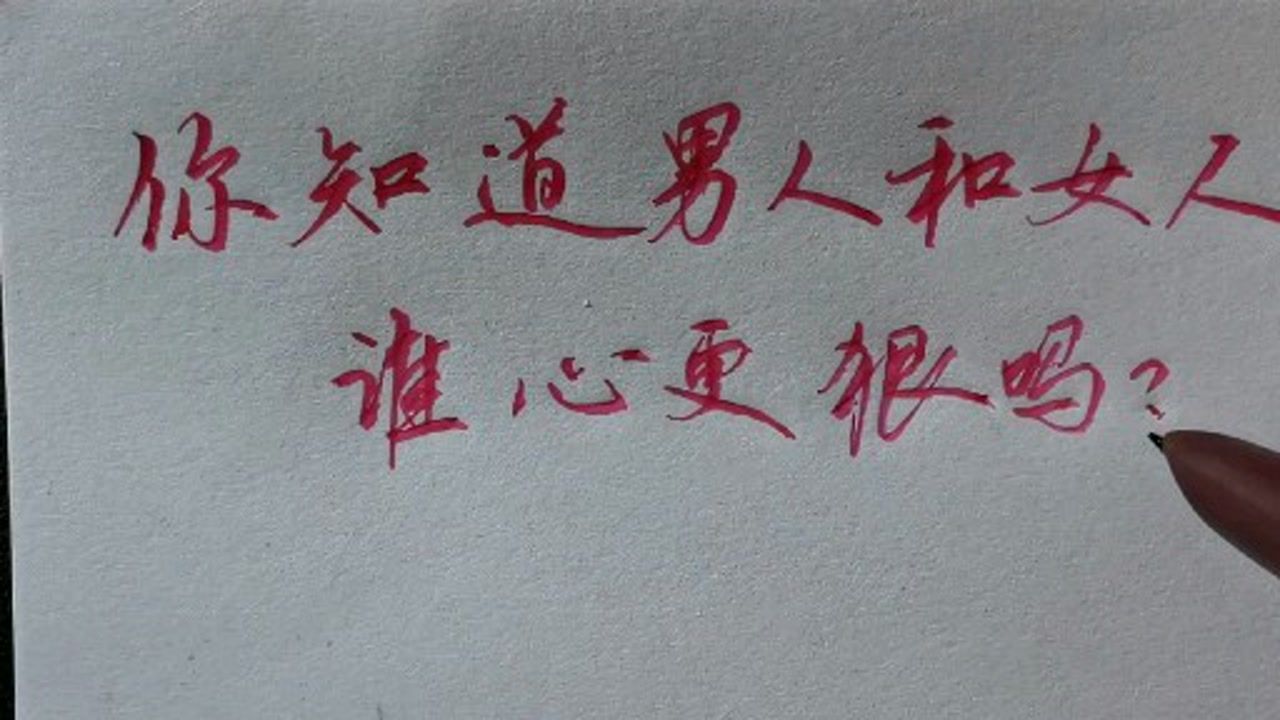 你知道男人和女人
谁心更狠吗?